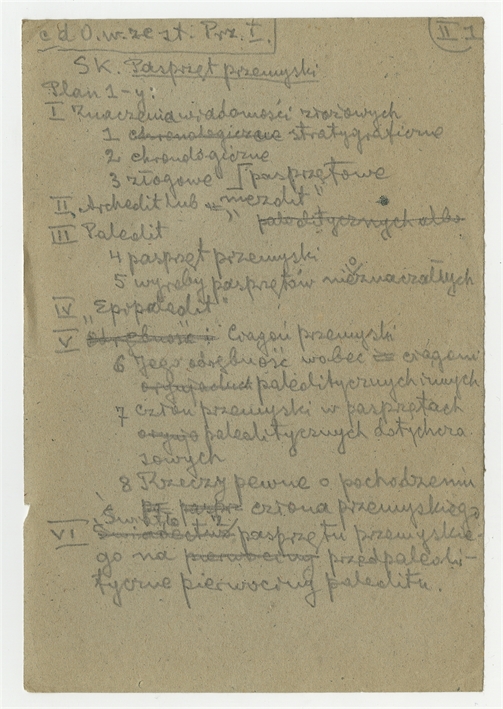 c d O.w.ze szt. Prz. I.
II 1
SK. Pasprzęt przemyski
Plan 1-y:
I Znaczenia wiadomości złożowych
1 chronologiczne stratygraficzne
2 chronologiczne
3 złogowe pasprzętowe
II Archedit lub „mezolit"
paleolitycznych albo
III Paleolit
4 pasprzęt przemyski
5 wyręby pasprzętów nieoznaczałych
IV „Epipaleolit"
V Odrębność i Ciągoń przemyski
6 Jego odrębność wobec ciągoni
paleolitycznych innych
7 człon przemyski w pasprzętach
paleolitycznych dotychcza
sowych
8 Rzeczy pewne o pochodzeniu
człona przemyskiego
VI Światło z pasprzętu przemyskie-
go na pierwociny przedpaleoli-
tyczne pierwociny paleolitu.